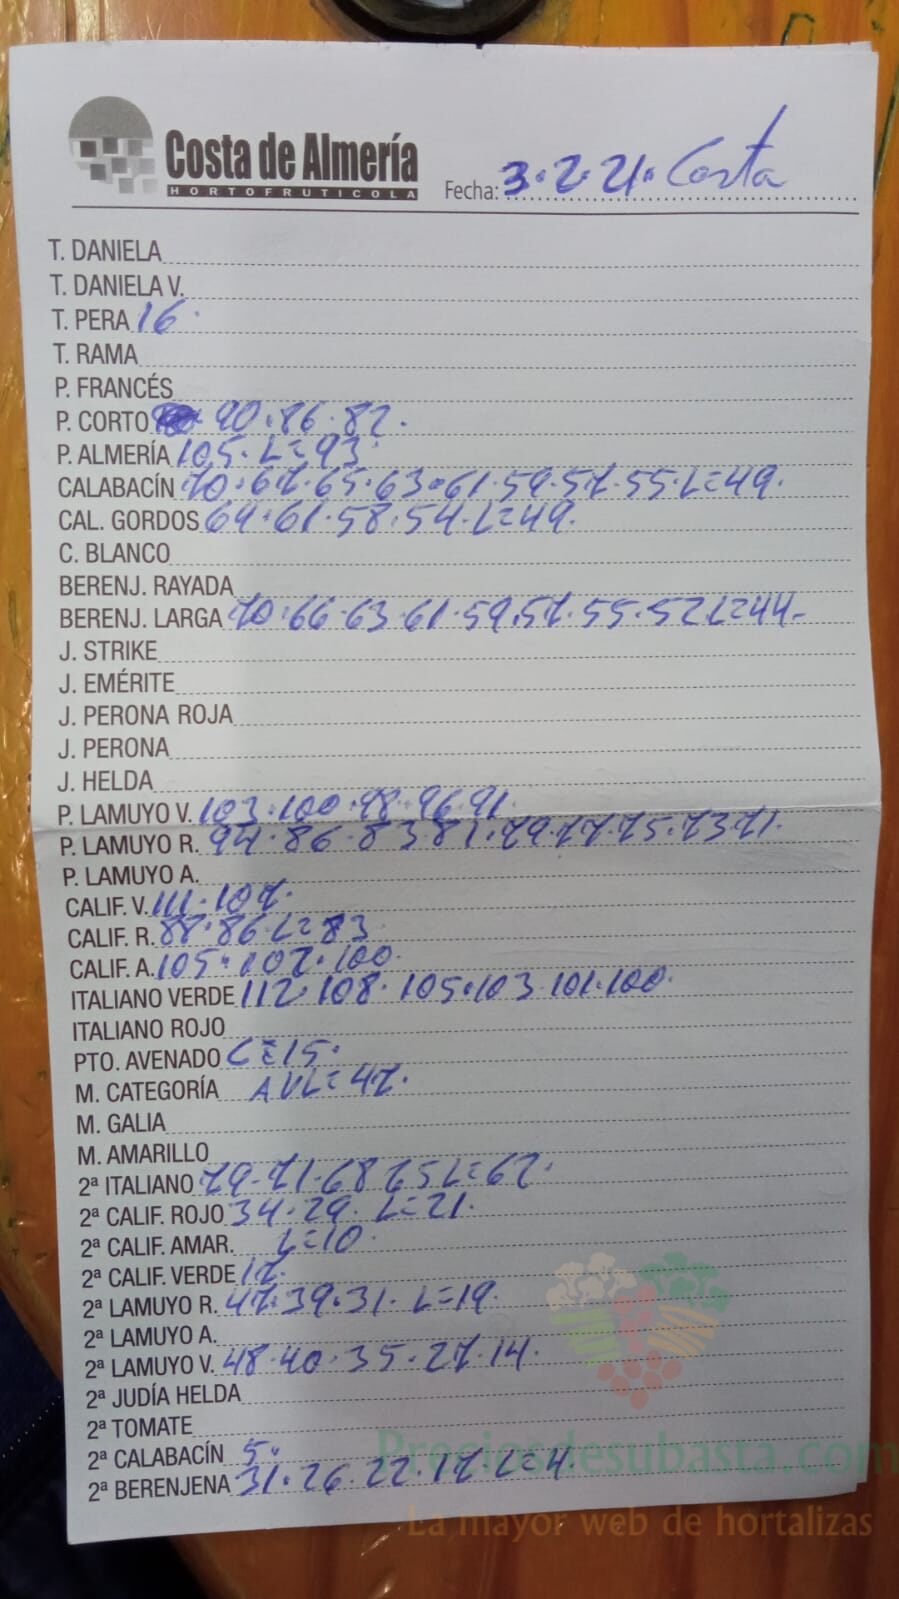 Costa de Almería
HORTOFRUTICOLA
Fecha: 3.2.21. Costa
T. DANIELA
T. DANIELA V.
T. PERA 16.
T. RAMA
P. FRANCÉS
P. CORTO 90.86.82.
P. ALMERÍA 105. L=93.
CALABACÍN 70.67.65.63.61.59.57.55.L=49.
CAL. GORDOS 64.61.58.54.L=49.
C. BLANCO
BERENJ. RAYADA
BERENJ. LARGA 70.66.63.61.59.57.55.52 L=44-
J. STRIKE
J. EMÉRITE
J. PERONA ROJA
J. PERONA
J. HELDA
P. LAMUYO V. 103.100.98.96.91.
P. LAMUYO R. 94.86.83.81.79.77.75.73.71.
P. LAMUYO A.
CALIF. V. 111.107.
CALIF. R. 88.86.L=83
CALIF. A. 105.102.100.
ITALIANO VERDE 112.108.105.103.101.100.
ITALIANO ROJO
PTO. AVENADO L=15.
M. CATEGORÍA AVL=47.
M. GALIA
M. AMARILLO
2ª ITALIANO 79.71.68 65 L=62.
2ª CALIF. ROJO 34.29. L=21.
2ª CALIF. AMAR. L=10.
2ª CALIF. VERDE 17.
2ª LAMUYO R. 47.39.31. L=19.
2ª LAMUYO A.
2ª LAMUYO V. 48.40.35.27.14.
2ª JUDÍA HELDA
2ª TOMATE
2ª CALABACÍN 5.
2ª BERENJENA 31.26.22.17.L=4.
Preciosdesubasta.com
La mayor web de hortalizas